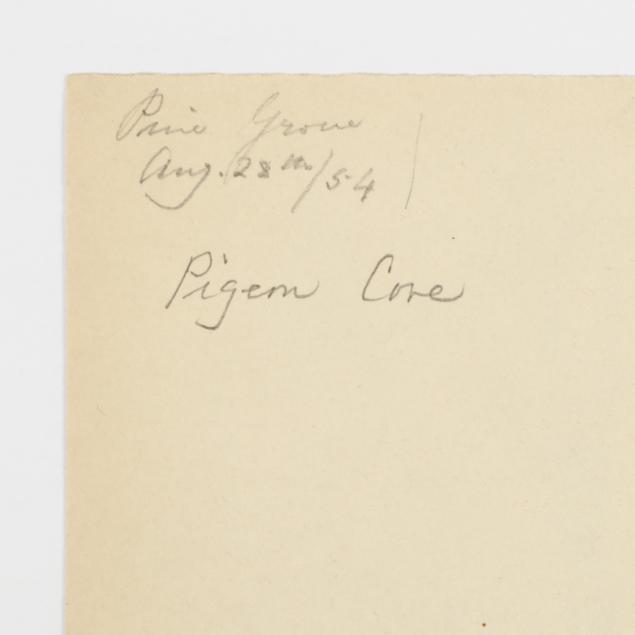 Pine Grove
Aug. 28th/54
Pigeon Cove